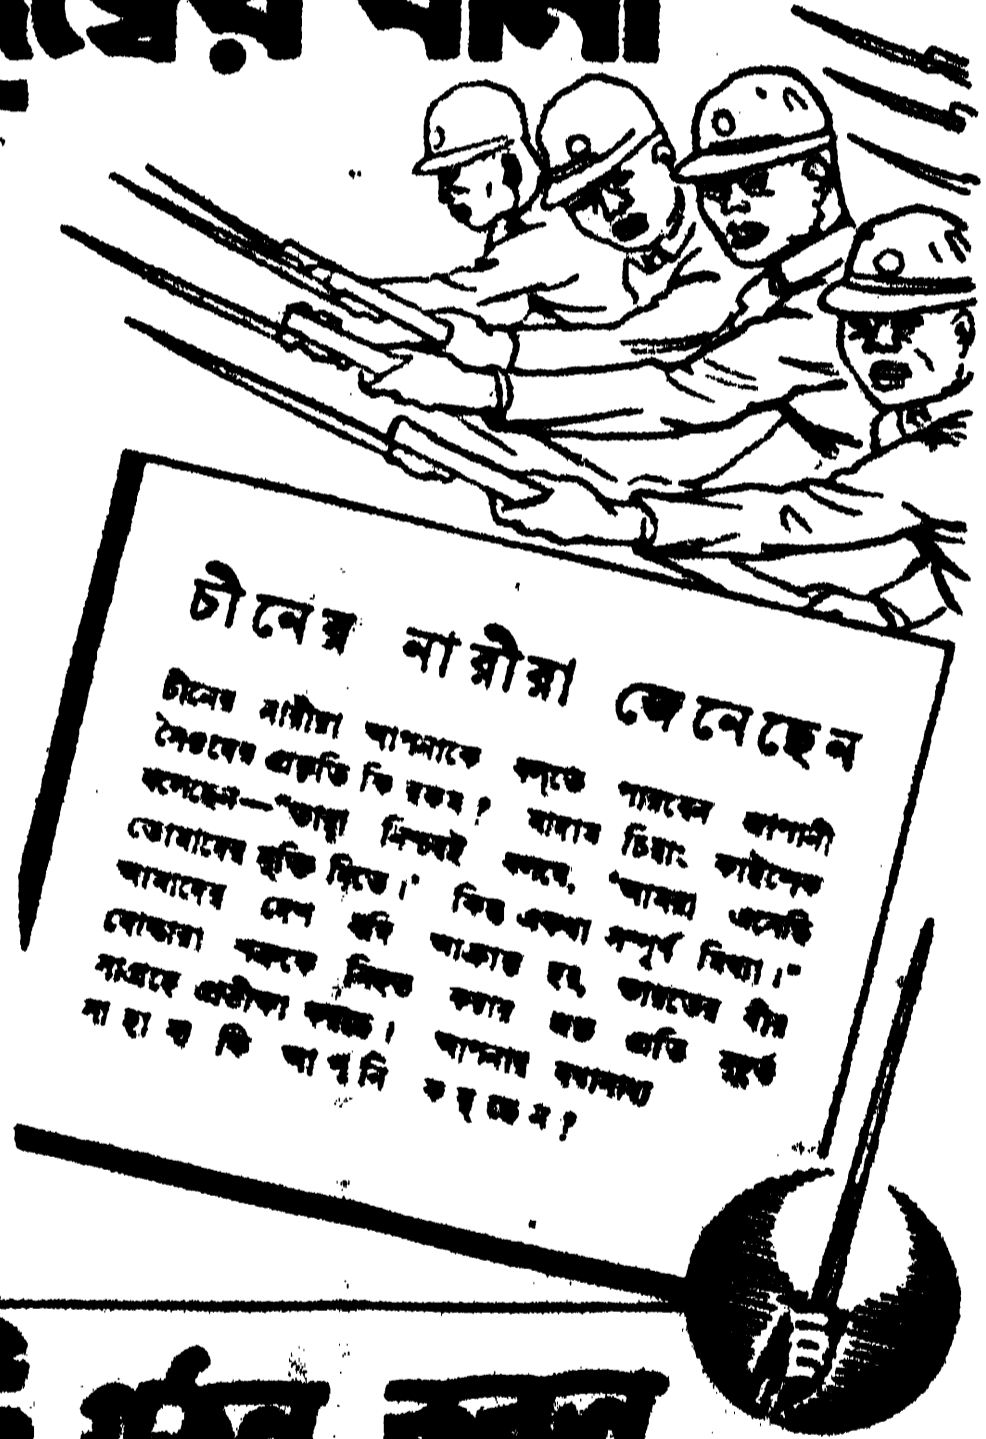 চীনের নারীরা জেনেছেন
চীনের নারীরা আপনাকে বল্‌তে পারবেন জাপানী
সৈন্যদের প্রকৃতি কি রকম? মাদাম চিয়াং কাইশেক
বলেছেন—“তারা নিশ্চয়ই বলবে, ‘আমরা এসেছি
তোমাদের মুক্তি দিতে।’ কিন্তু একথা সম্পূর্ণ মিথ্যা।”
আমাদের দেশ যদি আক্রান্ত হয়, ভারতের বীর
যোদ্ধারা শত্রুকে নিহত করার জন্য প্রতি মুহূর্ত
সাগ্রহে প্রতীক্ষা করছে। আপনার যথাসাধ্য
সাহায্য কি আপনি করছেন?
গঠন করুন